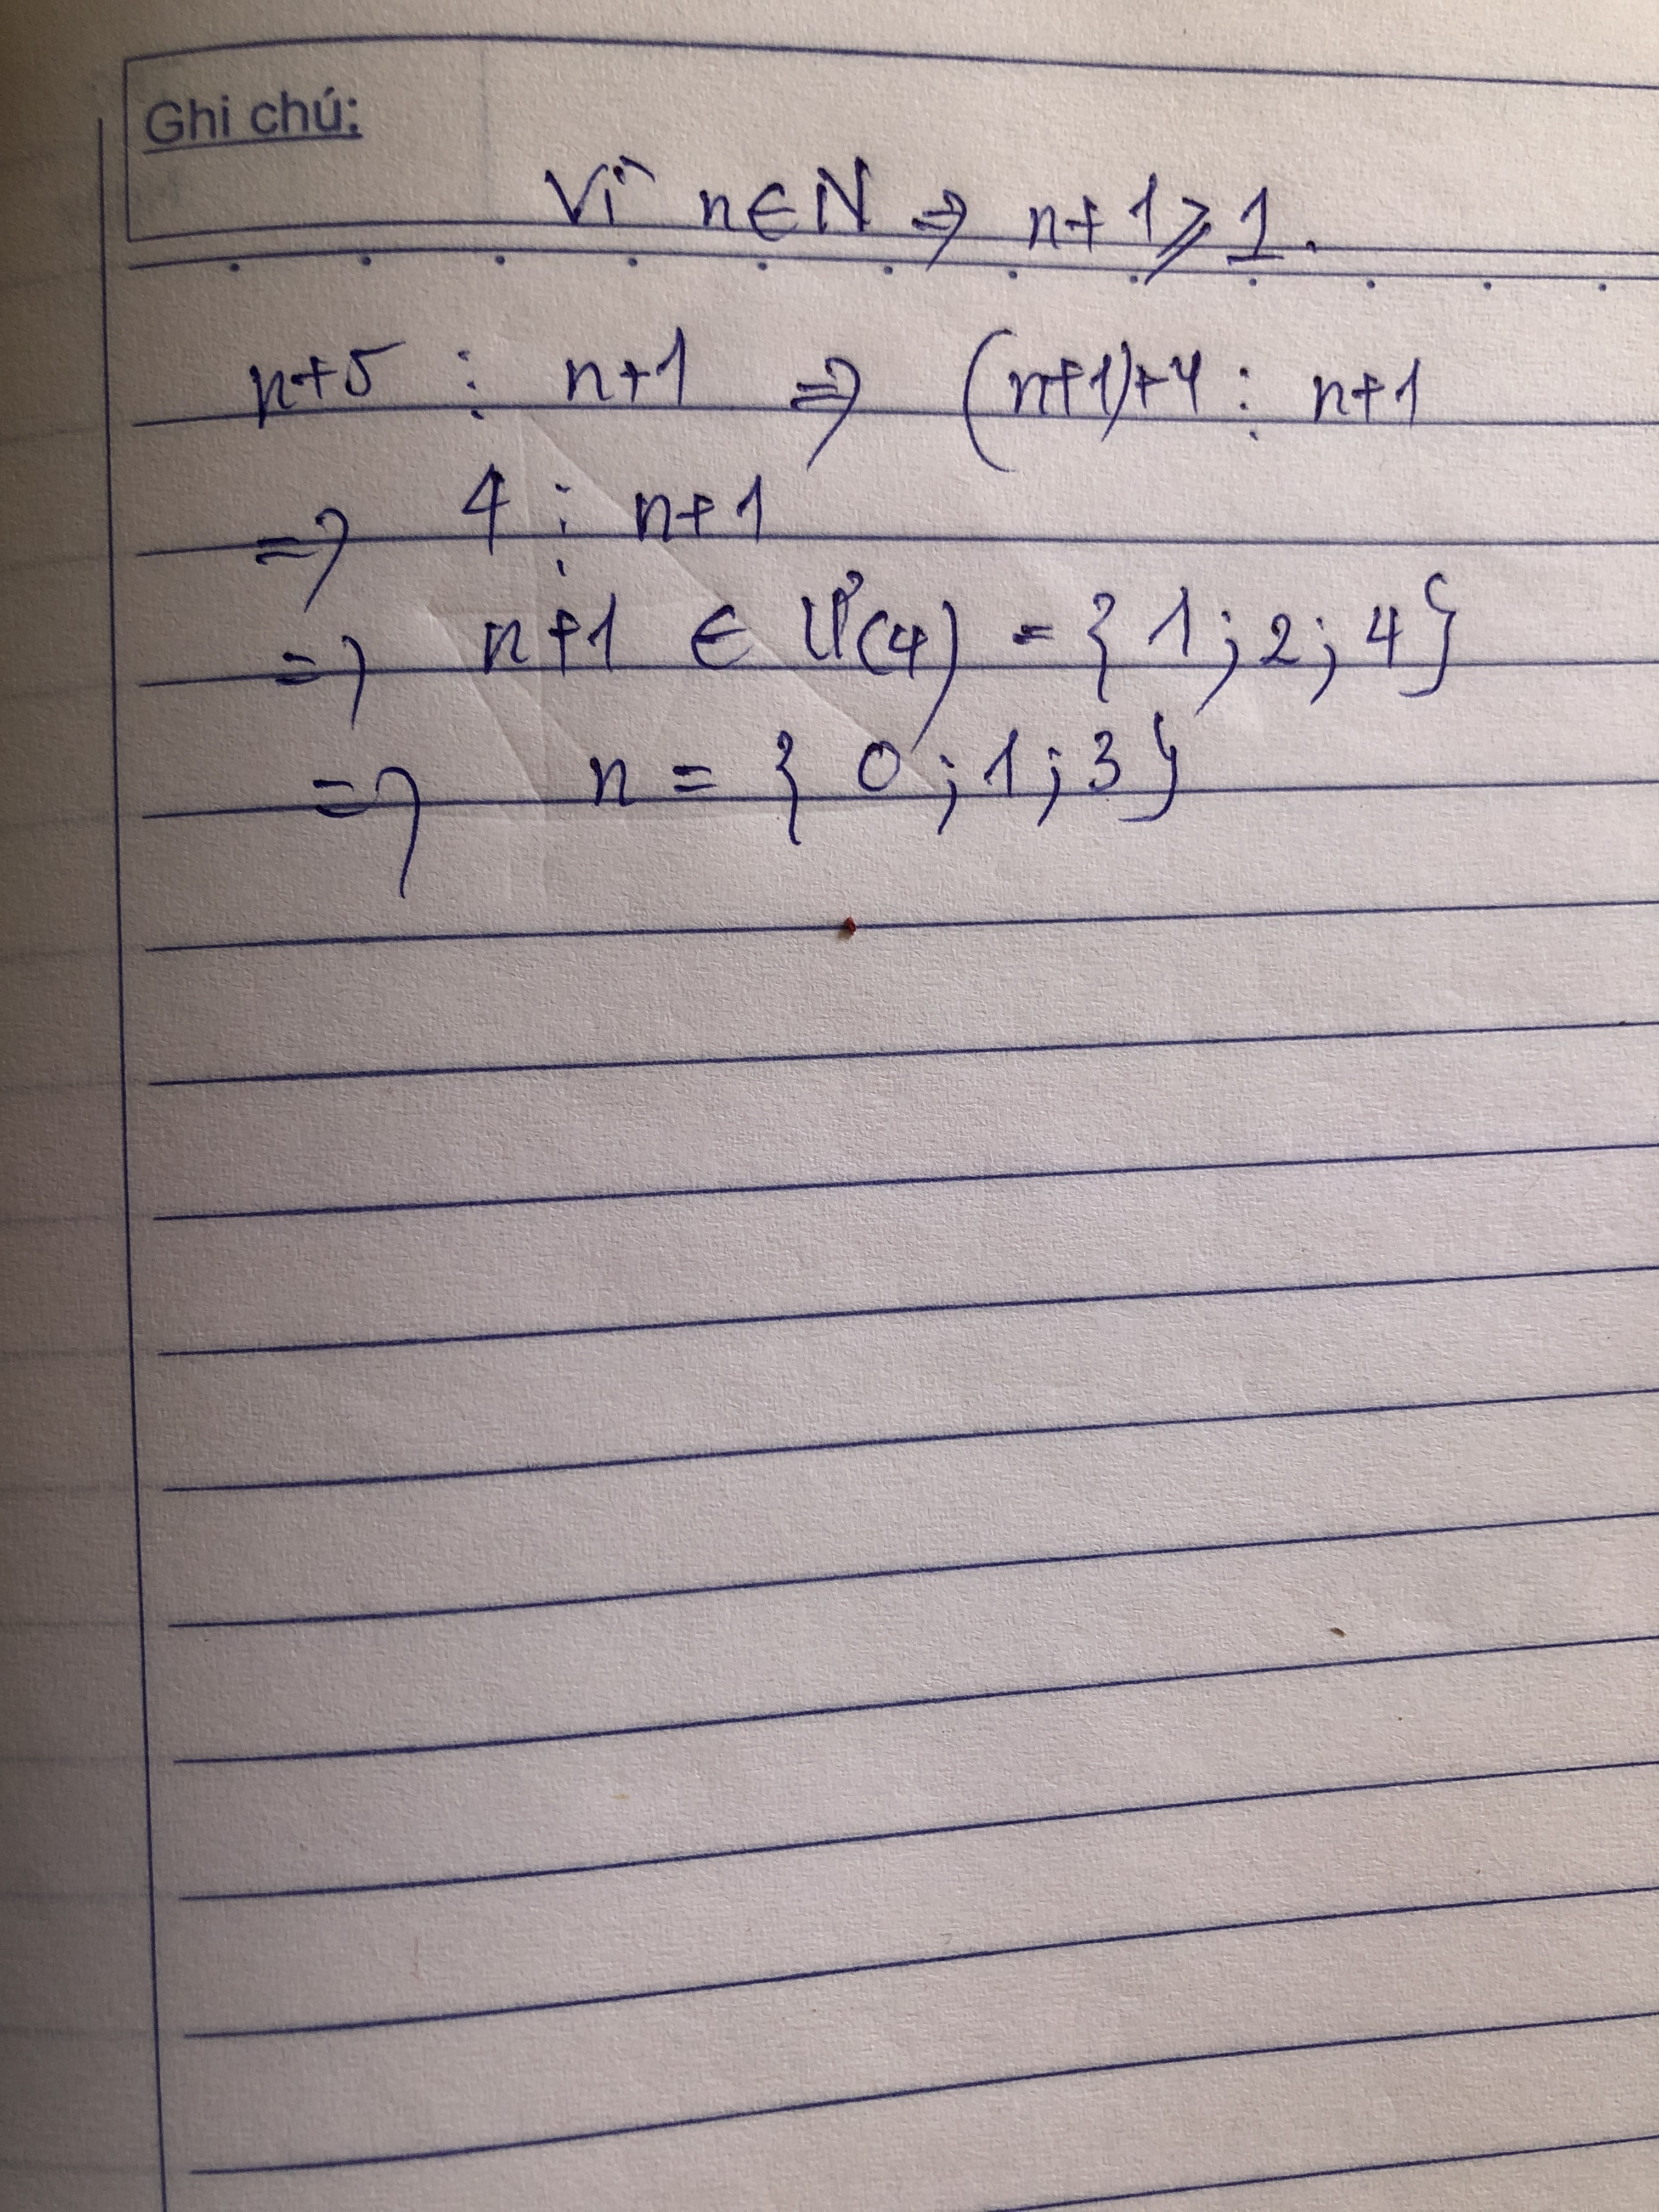 Ghi chú:
Vì n∈N => n+1⩾1.
n+5 ⋮ n+1 => (n+1)+4 ⋮ n+1
=> 4 ⋮ n+1
=> n+1 ∈ Ư(4) = {1;2;4}
=> n = {0;1;3}